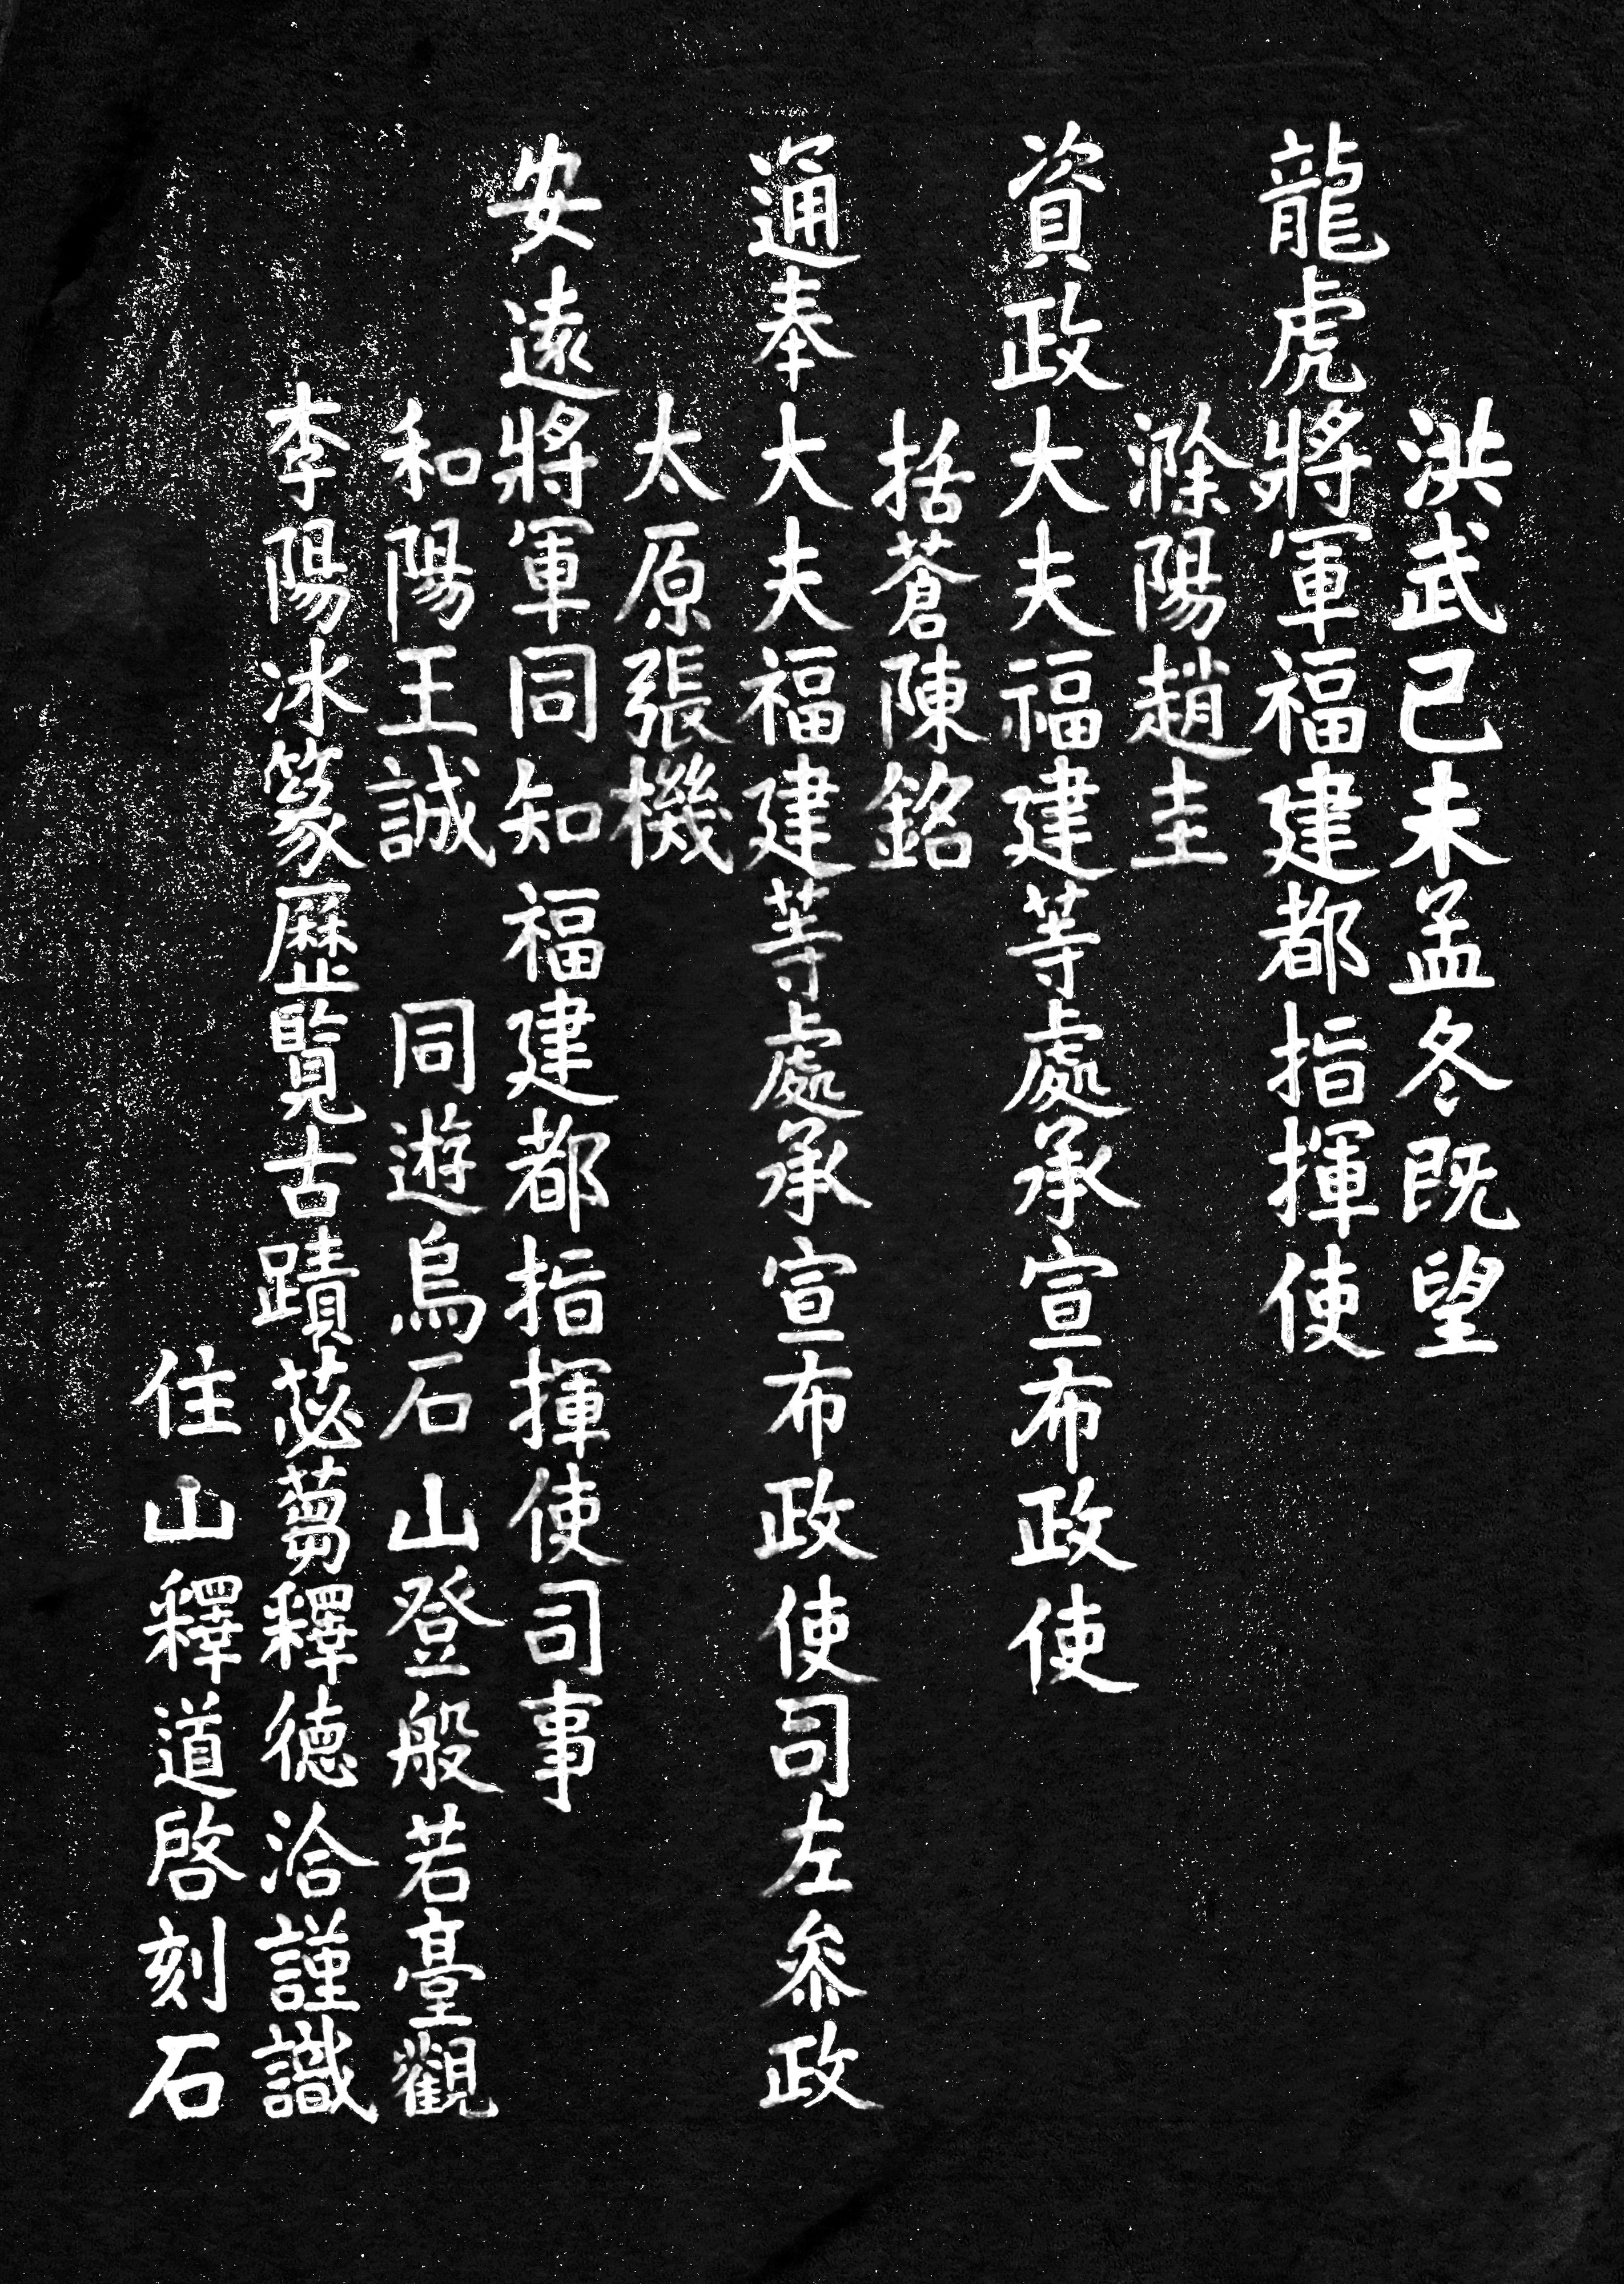 洪武己未孟冬既望
龍虎將軍福建都指揮使
滁陽趙圭
資政大夫福建等處承宣布政使
括蒼陳銘
通奉大夫福建等處承宣布政使司左叅政
太原張機
安遠將軍同知福建都指揮使司事
和陽王誠 同遊烏石山登般若臺觀
李陽冰篆歷覽古蹟苾蒭釋德洽謹識
住山釋道啓刻石